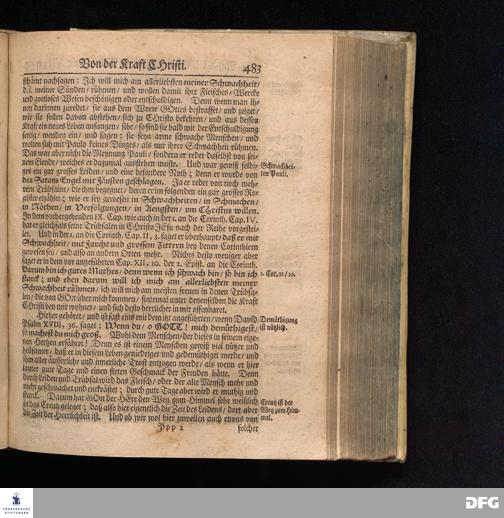 Von der Kraft CHristi. 483
schönt nachsagen: Ich will mich am allerliebsten meiner Schwachheit/
d.i. meiner Sünden/ rühmen/ und wollen damit ihre Fleisches-Wercke
und gottloses Wesen beschönigen oder entschuldigen. Denn wenn man ih-
nen darinnen zuredet/ sie aus dem Worte GOttes bestraffet/ und zeiget/
wie sie sollen davon abstehen/ sich zu Christo bekehren/ und aus dessen
Kraft ein neues Leben anfangen/ sihe/ so sind sie bald mit der Entschuldigung
fertig/ wenden ein/ und sagen: sie seyn arme schwache Menschen/ und
wolten sich mit Paulo keines Dinges/ als nur ihrer Schwachheit rühmen.
Das war aber nicht die Meynung Pauli/ sondern er redet daselbst von sei-
nem Elende/ welches er dazumal ausstehen muste. Und war gewiß selbi-
ges ein gar grosses Leiden/ und eine besondere Noth; denn er wurde von
des Satans Engel mit Fäusten geschlagen. Ja er redet von noch meh-
rern Trübsalen/ die ihm begegnet/ deren er im folgenden ein gar grosses Re-
gister erzählet; wie er sey gewesen in Schwachheiten/ in Schmachen/
in Nöthen/ in Verfolgungen/ in Aengsten/ um Christus willen.
In dem vorhergehenden IX. Cap. wie auch in der 1. an die Corinth. Cap. IV.
hat er gleichfals seine Trübsalen in Christo JEsu nach der Reihe vorgestel-
let. Und in der 1. an die Corinth. Cap. II, 3. saget er überhaupt/ daß er mit
Schwachheit/ mit Furcht und grossem Zittern bey denen Corinthiern
gewesen sey/ und also an andern Orten mehr. Nichts desto weniger aber
saget er in dem vor angeführten Cap. XII, 10. der 2. Epist. an die Corinth.
Darum bin ich gutes Muthes/ denn wenn ich schwach bin/ so bin ich
starck; und eben darum will ich mich am allerliebsten meiner
Schwachheit rühmen/ ich will mich am meisten freuen in denen Trübsa-
len/ die von GOtt über mich kommen/ sintemal unter denenselben die Kraft
Christi bey mir wohnet/ und sich desto herrlicher in mit offenbaret.
Hieher gehöret/ und ist fast eins mit dem ist angeführten/ wenn David
Psalm XVIII, 36. saget: Wenn du/ o GOTT! mich demüthigest/
so machest du mich groß. Wohl dem Menschen/ der dieses in seinem eige-
nen Hertzen erfähret! Denn es ist einem Menschen gewiß viel nützer und
heilsamer/ daß er in diesem Leben geniedriget und gedemüthiget werde/ und
ihm aller äusserliche und innerliche Trost entzogen werde/ als wenn er hier
lauter gute Tage und einen steten Geschmack der Freuden hätte. Denn
durch Leiden und Trübsal wird das Fleisch/ oder der alte Mensch mehr und
mehr geschwächet und entkräftet; durch gute Tage aber wird er muthig und
starck. Darum hat GOtt der HErr den Weg zum Himmel sehr weißlich
in das Creutz geleget; daß also hier eigentlich die Zeit des Leidens/ dort aber
die Zeit der Herrlichkeit ist. Und ob wir wol hier zuweilen auch etwas von
Ppp 2 solcher
Schwachhei-
ten Pauli.
2. Cor. 12/ 10.
Demüthigung
ist nützlich.
Creutz ist der
Weg zum Him-
mel.
FRANCKESCHE
STIFTUNGEN
DFG